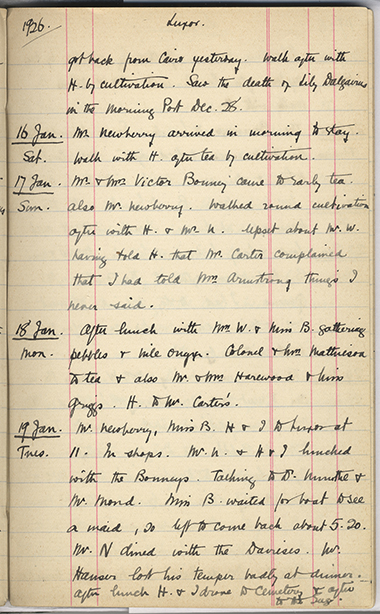 1926. Luxor.
got back from Cairo yesterday. Walk after with
H. by cultivation. Saw the death of Lily Dalgairns
in the Morning Post Dec. 28.
16 Jan. Mr Newberry arrived in morning to stay.
Sat. Walk with H. after tea by cultivation.
17 Jan Mr. & Mrs Victor Bonney came to early tea.
Sun. also Mr. Newberry. Walked round cultivation
after with H. & Mr. N. Upset about Mr. W.
having told H. that Mr. Carter complained
that I had told Mrs Armstrong things I
never said.
18 Jan. After lunch with Mrs W. & Miss B. gathering
Mon. pebbles & nile onyx. Colonel & Mrs Mathieson
to tea & also Mr & Mrs Harewood & Miss
Griggs. H. to Mr. Carter's.
19 Jan. Mr. Newberry, Miss B. H & I to Luxor at
Tues. 11. In shops. Mr. N. & H & I lunched
with the Bonneys. Talking to Dr. Munthe &
Mr. Mond. Miss B. waited for boat to see
a maid, so left to come back about 5-20.
Mr. N dined with the Davieses. Mr.
Hauser lost his temper badly at dinner.
After lunch H. & I drove to Cemetery & after
to